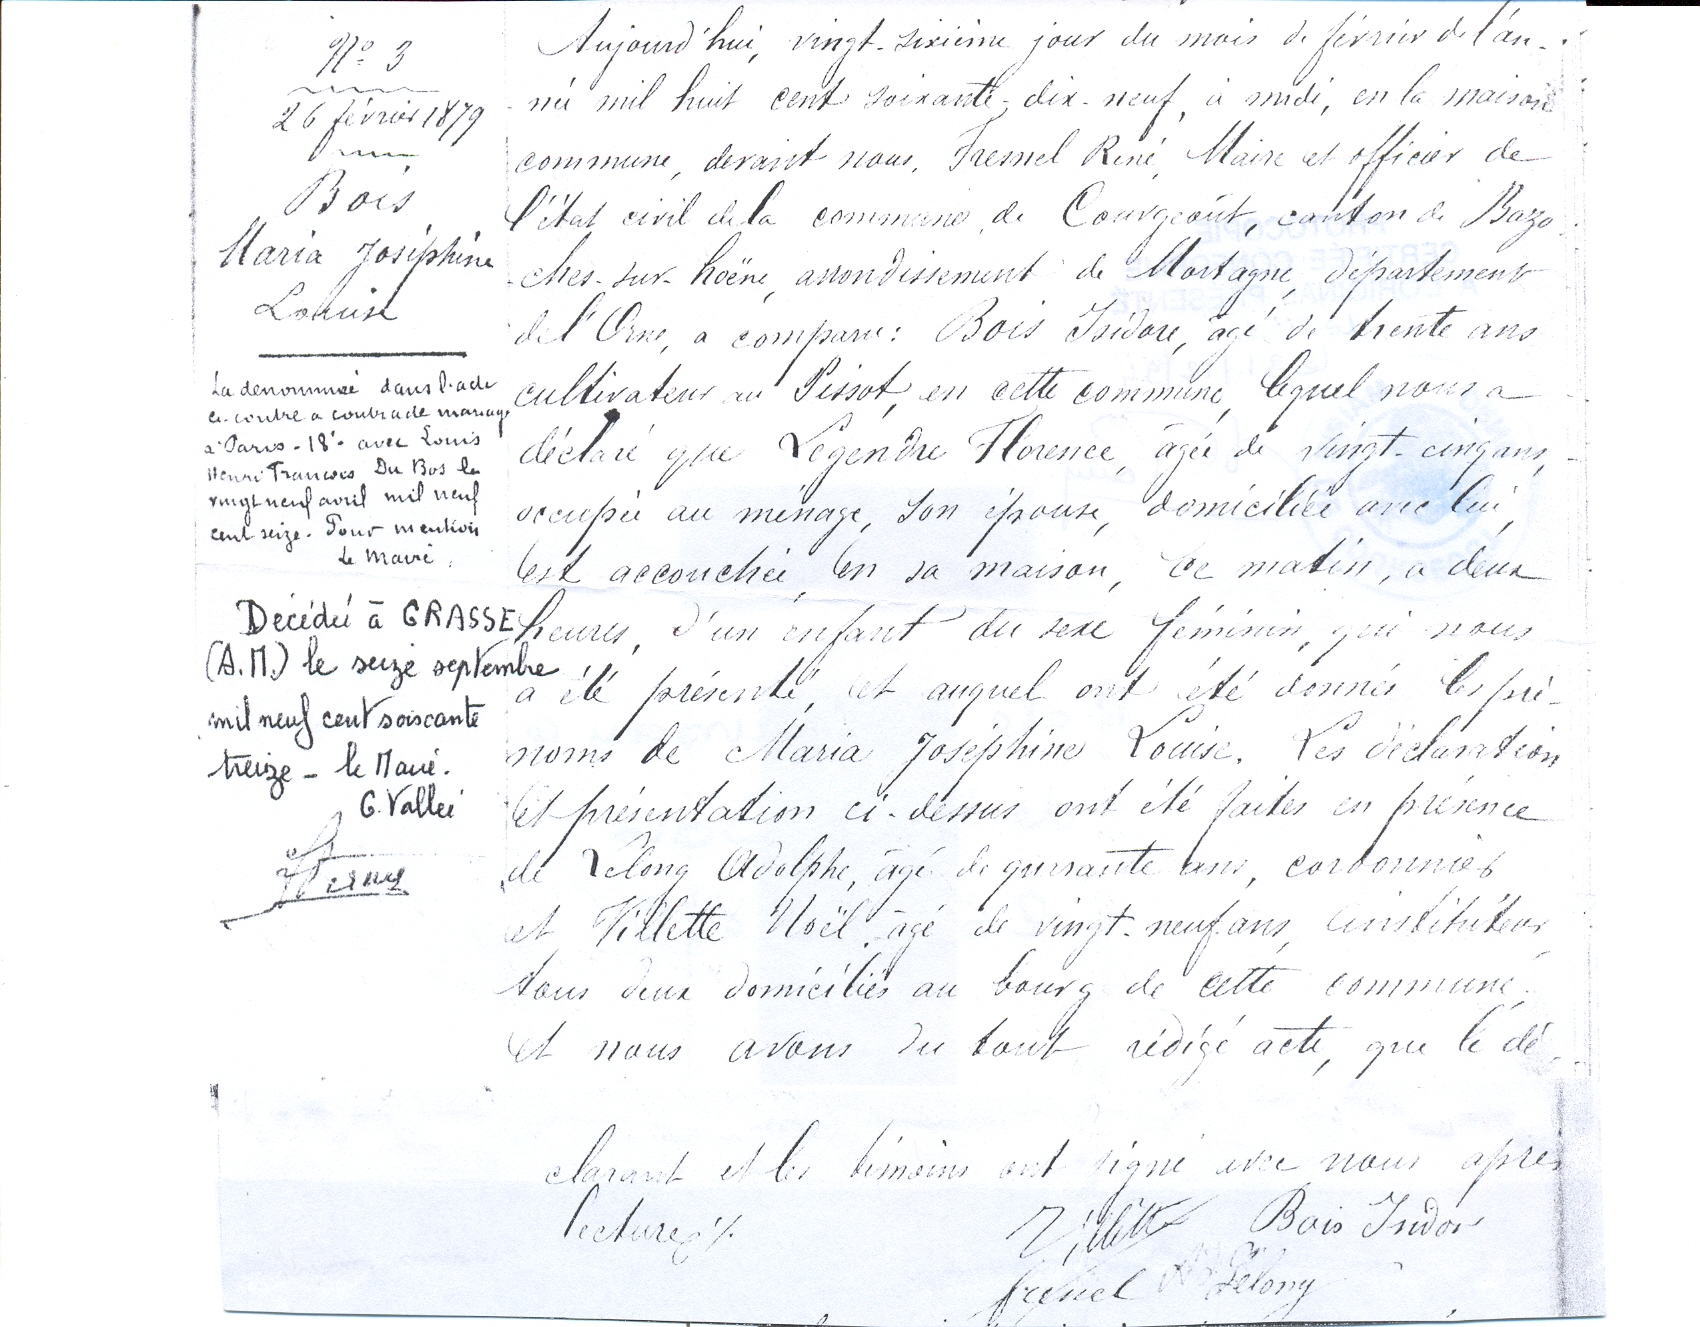 Nº 3
26 février 1879
Bois
Maria Joséphine
Louise
La dénommée dans l'acte
ci-contre a contracté mariage
à Paris - 18e - avec Louis
Henri François Du Bos le
vingt neuf avril mil neuf
cent seize. Pour mention
Le Maire.
Décédée à GRASSE
(A.M.) le seize septembre
mil neuf cent soixante
treize - le Maire.
G. Vallée
Aujourd'hui, vingt-sixième jour du mois de février de l'an-
née mil huit cent soixante-dix-neuf, à midi, en la maison
commune, devant nous, Fresnel René, Maire et officier de
l'état civil de la commune de Courgeoût, canton de Bazo-
ches-sur-hoëne, arrondissement de Mortagne, département
de l'Orne, a comparu: Bois Isidore, âgé de trente ans
cultivateur au Pissot, en cette commune, lequel nous a
déclaré que Legendre Florence, âgée de vingt-cinq ans,
occupée au ménage, son épouse, domiciliée avec lui,
est accouchée en sa maison, ce matin, à deux
heures, d'un enfant du sexe féminin, qui nous
a été présenté, et auquel ont été donnés les pré-
noms de Maria Joséphine Louise. Les déclaration
et présentation ci-dessus ont été faites en présence
de Lelong Adolphe, âgé de quarante ans, cordonnier
et Villette Noël, âgé de vingt-neuf ans, instituteur
tous deux domiciliés au bourg de cette commune.
et nous avons du tout rédigé acte, que le dé-
clarant et les témoins ont signé avec nous après
lecture
Villette Bois Isidor
Fresnel Lelong